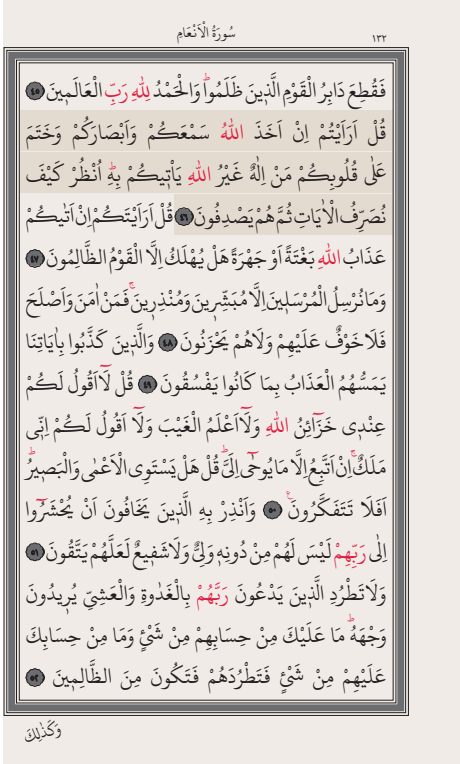 سُورَةُ الْاَنْعَامِ ١٣٢
فَقُطِعَ دَابِرُ الْقَوْمِ الَّذ۪ينَ ظَلَمُواۜ وَالْحَمْدُ لِلّٰهِ رَبِّ الْعَالَم۪ينَ ﴿٤٥﴾
قُلْ اَرَاَيْتُمْ اِنْ اَخَذَ اللّٰهُ سَمْعَكُمْ وَاَبْصَارَكُمْ وَخَتَمَ
عَلٰى قُلُوبِكُمْ مَنْ اِلٰهٌ غَيْرُ اللّٰهِ يَأْت۪يكُمْ بِه۪ۜ اُنْظُرْ كَيْفَ
نُصَرِّفُ الْاٰيَاتِ ثُمَّ هُمْ يَصْدِفُونَ ﴿٤٦﴾ قُلْ اَرَاَيْتَكُمْ اِنْ اَتٰيكُمْ
عَذَابُ اللّٰهِ بَغْتَةً اَوْ جَهْرَةً هَلْ يُهْلَكُ اِلَّا الْقَوْمُ الظَّالِمُونَ ﴿٤٧﴾
وَمَا نُرْسِلُ الْمُرْسَل۪ينَ اِلَّا مُبَشِّر۪ينَ وَمُنْذِر۪ينَۚ فَمَنْ اٰمَنَ وَاَصْلَحَ
فَلَا خَوْفٌ عَلَيْهِمْ وَلَا هُمْ يَحْزَنُونَ ﴿٤٨﴾ وَالَّذ۪ينَ كَذَّبُوا بِاٰيَاتِنَا
يَمَسُّهُمُ الْعَذَابُ بِمَا كَانُوا يَفْسُقُونَ ﴿٤٩﴾ قُلْ لَٓا اَقُولُ لَكُمْ
عِنْد۪ي خَزَٓائِنُ اللّٰهِ وَلَٓا اَعْلَمُ الْغَيْبَ وَلَٓا اَقُولُ لَكُمْ اِنّ۪ي
مَلَكٌۚ اِنْ اَتَّبِعُ اِلَّا مَا يُوحٰٓى اِلَيَّۜ قُلْ هَلْ يَسْتَوِي الْاَعْمٰى وَالْبَص۪يرُۜ
اَفَلَا تَتَفَكَّرُونَ۟ ﴿٥٠﴾ وَاَنْذِرْ بِهِ الَّذ۪ينَ يَخَافُونَ اَنْ يُحْشَرُٓوا
اِلٰى رَبِّهِمْ لَيْسَ لَهُمْ مِنْ دُونِه۪ وَلِيٌّ وَلَا شَف۪يعٌ لَعَلَّهُمْ يَتَّقُونَ ﴿٥١﴾
وَلَا تَطْرُدِ الَّذ۪ينَ يَدْعُونَ رَبَّهُمْ بِالْغَدٰوةِ وَالْعَشِيِّ يُر۪يدُونَ
وَجْهَهُۜ مَا عَلَيْكَ مِنْ حِسَابِهِمْ مِنْ شَيْءٍ وَمَا مِنْ حِسَابِكَ
عَلَيْهِمْ مِنْ شَيْءٍ فَتَطْرُدَهُمْ فَتَكُونَ مِنَ الظَّالِم۪ينَ ﴿٥٢﴾
وَكَذٰلِكَ